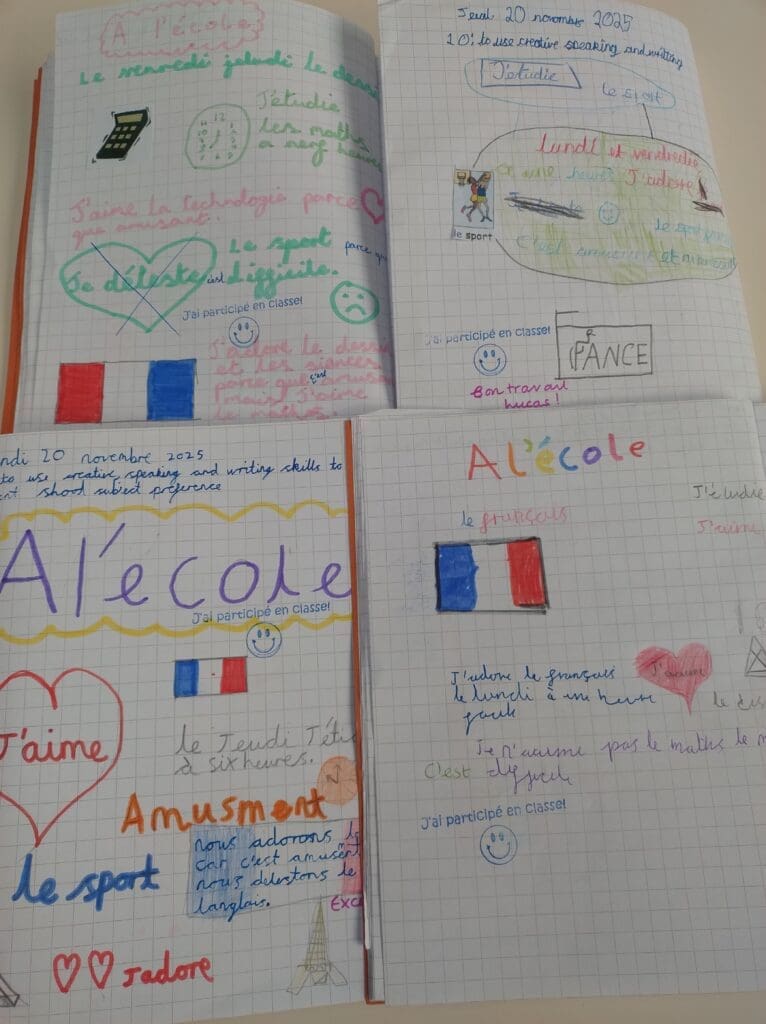 À l'école
Le venredi jeludi le dessi
J'étudie
les maths
a nerf heures
12
J'aime la technologie parce
que amusant.
Le sport
parce que
Je déteste
c'est
difficile.
J'ai participé en classe!
J'adore le dessin
et les siances
parce que c'est amusan
mais J'aime
le mathos.
Jeudi 20 novembre 2025
LO: to use creative speaking and writing
J'étudie
le sport
lundi et vendredie
on une heures J'adore
le sport
le sport parce
C'est amusant et
J'ai participé en classe!
FRANCE
Bon travail
Lucas!
ndi 20 novembre 2025
to use creative speaking and writing skills to
ent shool subject preference
A l'école
J'ai participé en classe!
J'aime
le Jeudi J'étu
à six heures.
Amusment
nous adorons l
car c'est amusent
nous detestons le
langlais.
le sport
Exc
J'adore
A l'école
le français
J'étudie
J'aime
J'adore le français
le lundi à une heure
facile
J'aime
le des
Je n'aime pas le maths le m
C'est difficile
J'ai participé en classe!